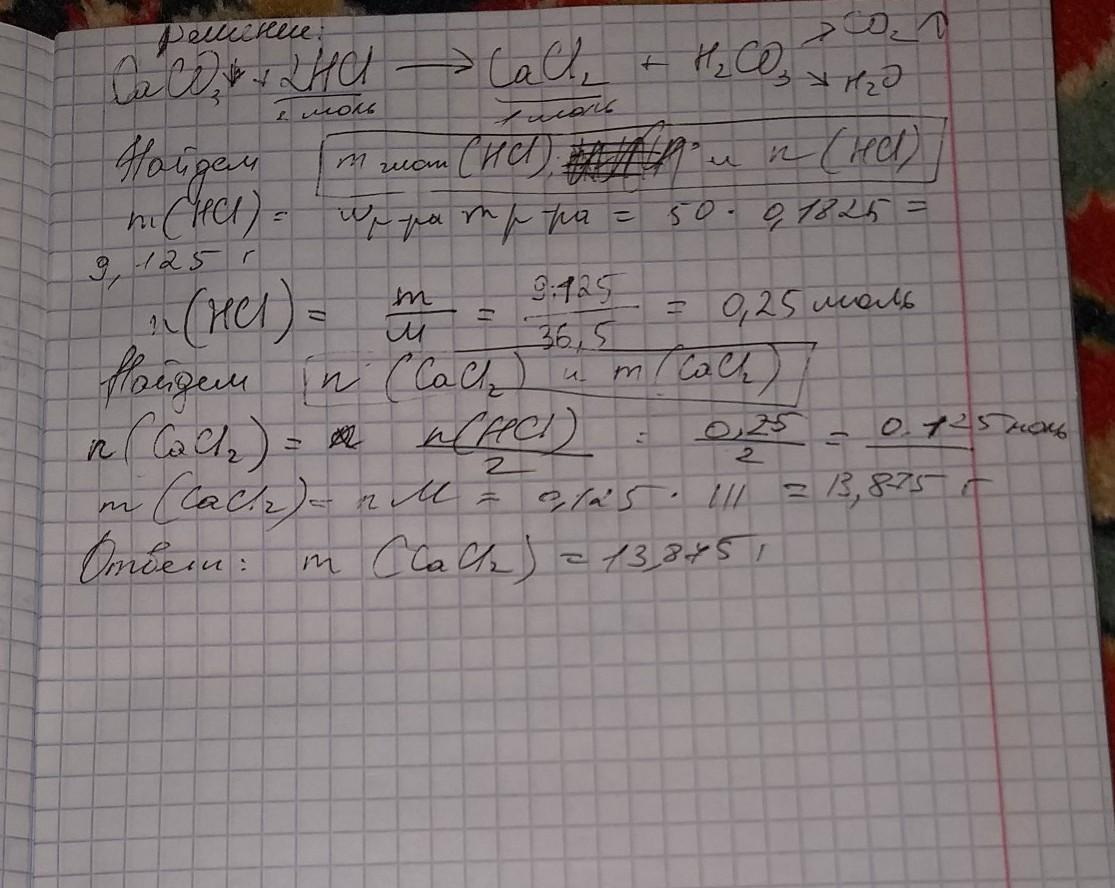 Решение:
CaCO₃↓ + 2HCl ⟶ CaCl₂ + H₂CO₃ ↗ CO₂↑ ↘ H₂O
2 моль 1 моль
Найдем m (HCl) и n (HCl)
m(HCl) = w р-ра m р-ра = 50 · 0,1825 =
9,125 г
n(HCl) = m/M = 9.125/36,5 = 0,25 моль
Найдем n (CaCl₂) и m (CaCl₂)
n (CaCl₂) = n(HCl)/2 = 0,25/2 = 0.125 моль
m (CaCl₂) = nM = 0,125 · 111 = 13,875 г
Ответ: m (CaCl₂) = 13,875 г